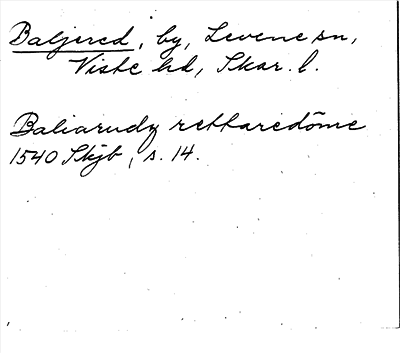 Baljered, by, Levene sn,
Viste hd, Skar. l.
Baliarudz rettaredöme
1540 Skjb, s. 14.